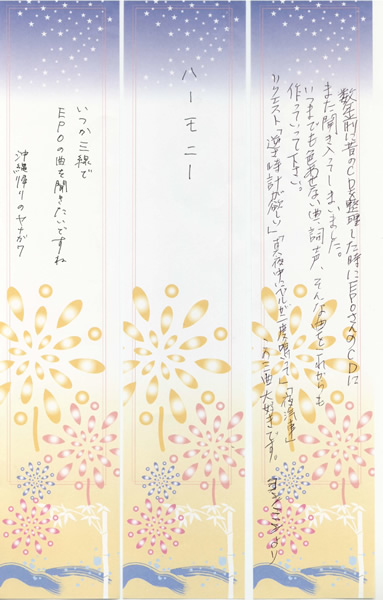 数年前に昔のCDを整理した時にEPOさんのCDに
また聞き入ってしまいました。
いつまでも色あせない曲、詞、声、そんな曲をこれからも
作っていって下さい。
リクエスト「逆さ時計が欲しい」「真夜中にベルが二度鳴って」「夜汽車」
この三曲大好きです。
より
ハーモニー
いつか三線で
EPOの曲を聞きたいですね
沖縄帰りのヤナガワ